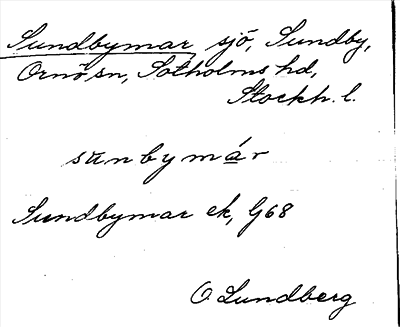 Sundbymar sjö, Sundby,
Ornö sn, Sotholms hd,
Stockh. l.
sunbymár
Sundbymar ek, G68
O Lundberg